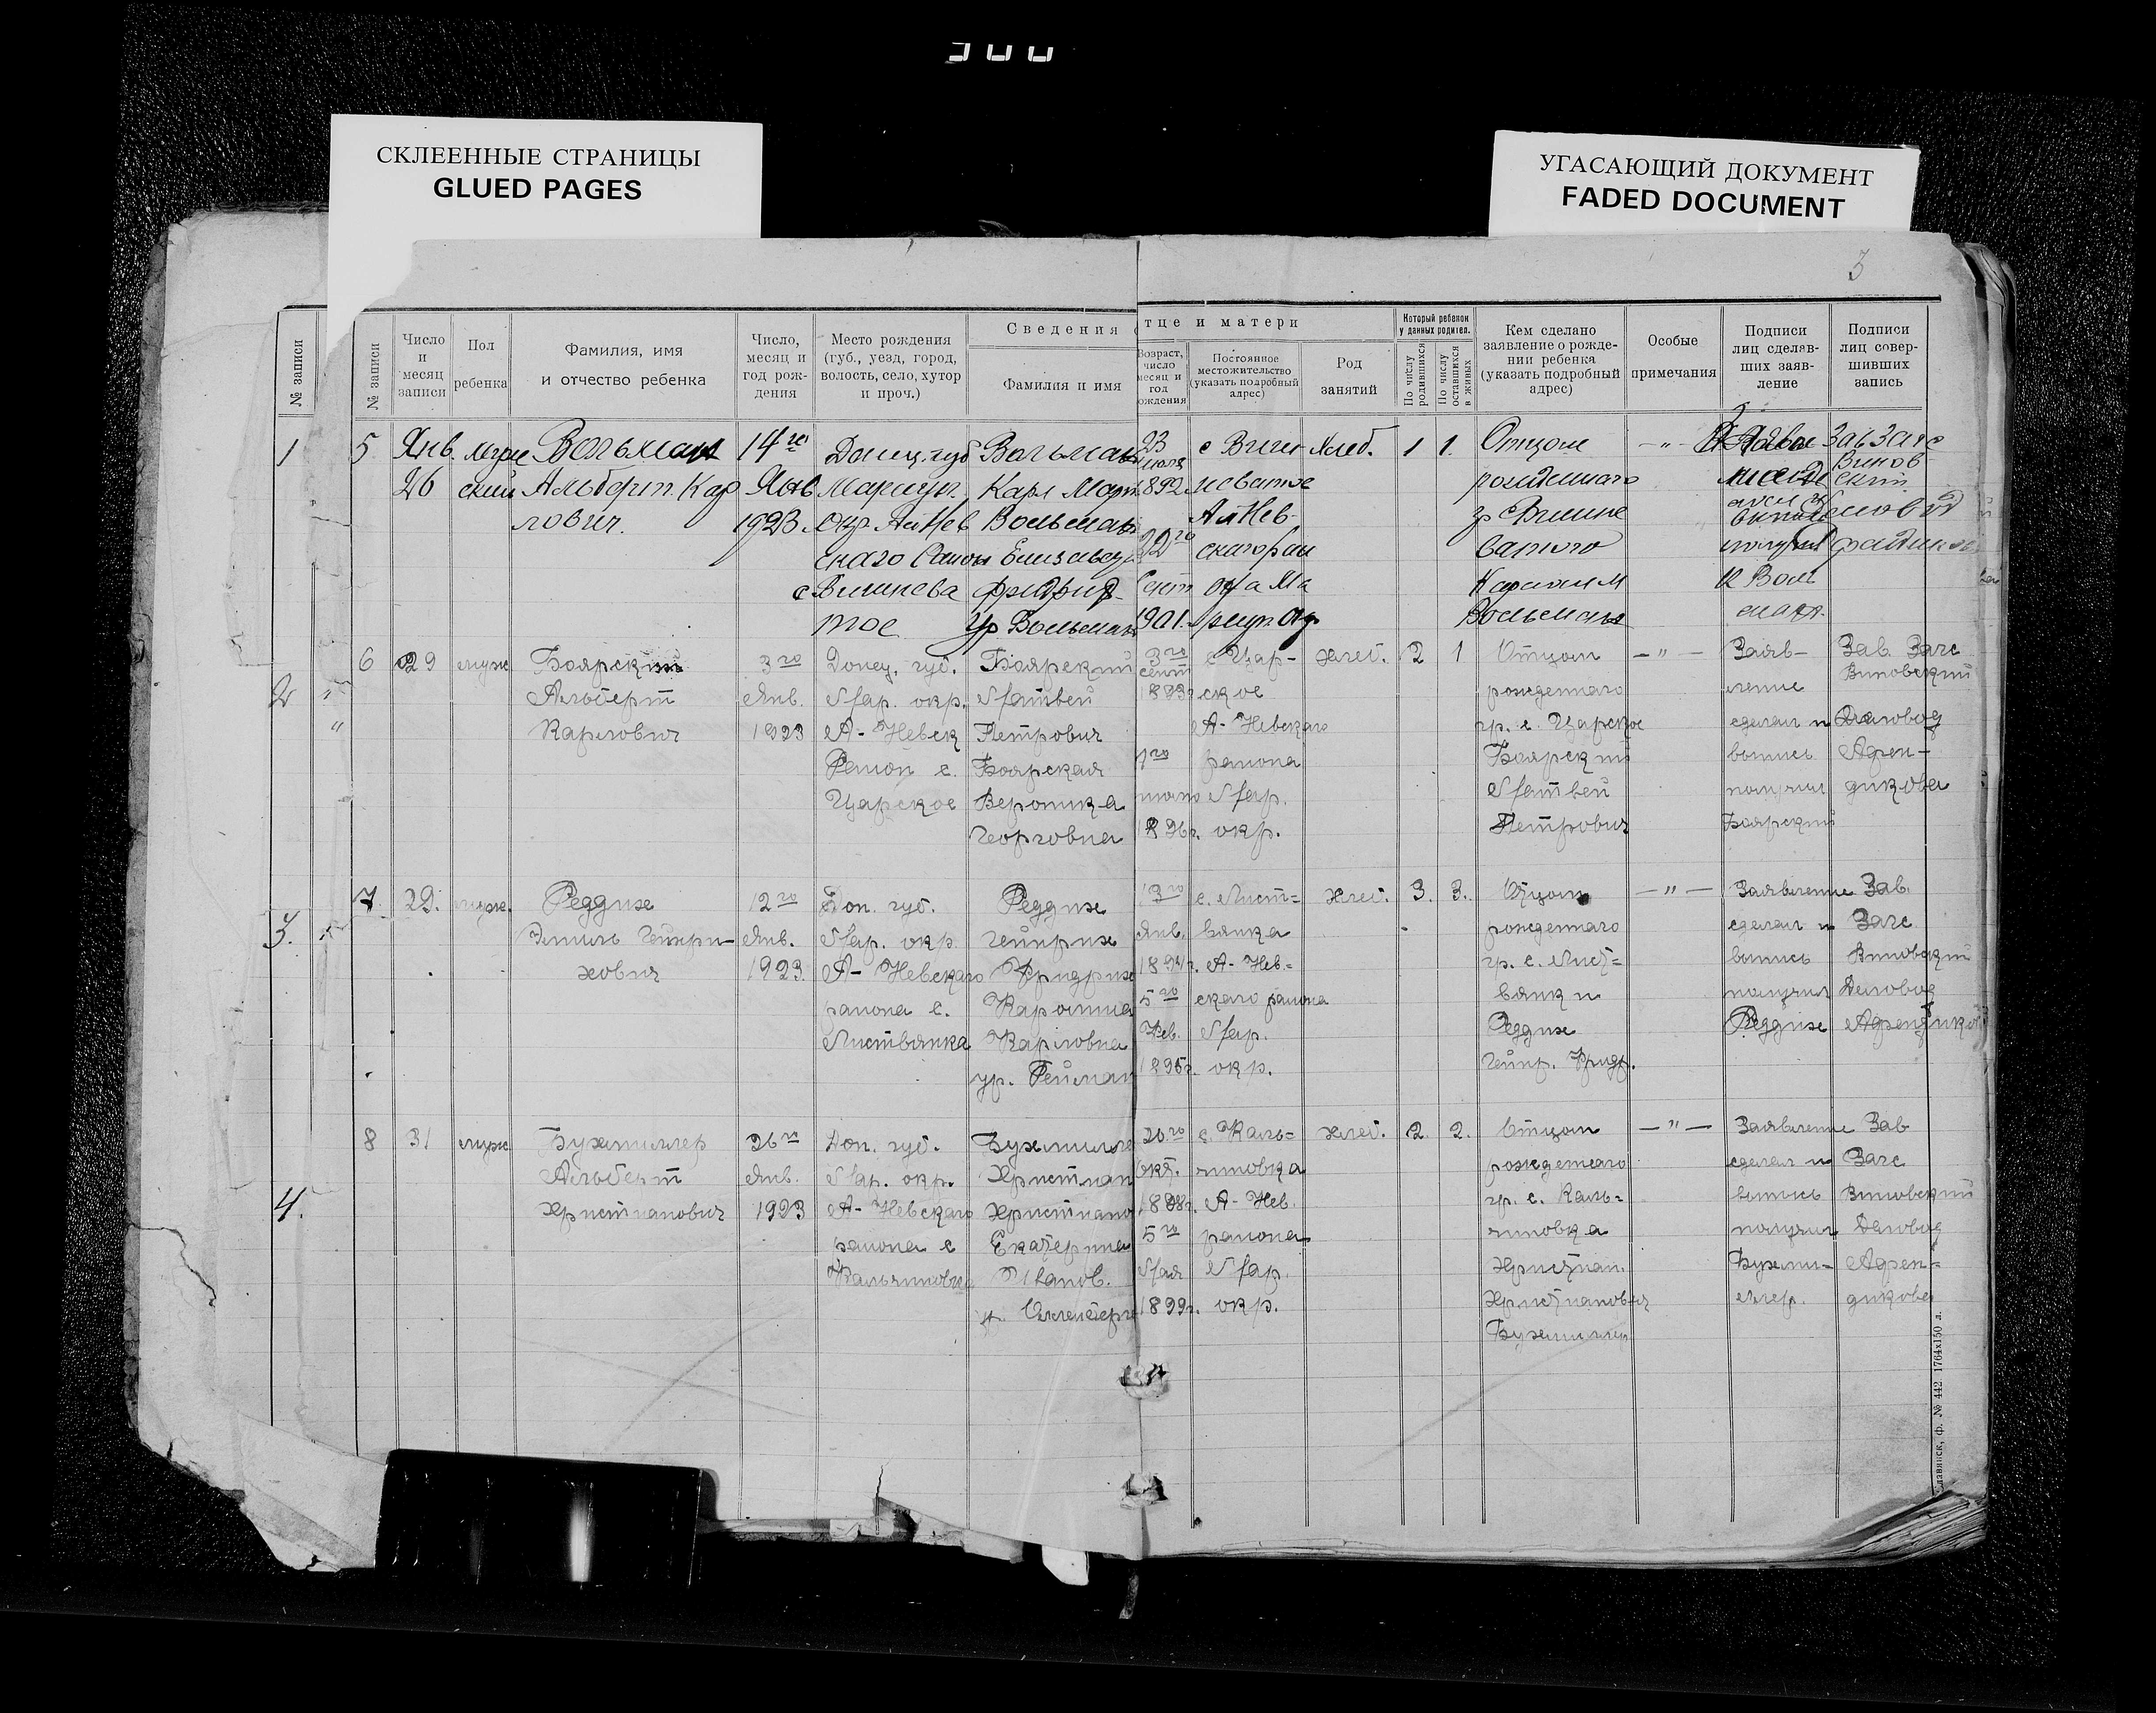 300
СКЛЕЕННЫЕ СТРАНИЦЫ
GLUED PAGES
УГАСАЮЩИЙ ДОКУМЕНТ
FADED DOCUMENT
3
№ записи
№ записи
Число и месяц записи
Пол ребенка
Фамилия, имя и отчество ребенка
Число, месяц и год рождения
Место рождения (губ., уезд, город, волость, село, хутор и проч.)
Сведения о
тце и матери
Фамилия и имя
Возраст, число месяц и год рождения
Постоянное местожительство (указать подробный адрес)
Род занятий
Который ребенок у данных родител.
По числу родившихся
По числу оставшихся в живых
Кем сделано заявление о рождении ребенка (указать подробный адрес)
Особые примечания
Подписи лиц сделавших заявление
Подписи лиц совершивших запись
1
5
Янв.
26
муж
ской
Вольман
Альберт Кар
лович
14го
Янв
1923
Донец. губ
Мариуп.
окр Ал Нев
скаго
Вольман
Карл Март
Вольман
23
июля
1892
22го
Сент
1901
с Виш
неватое
Ал Нев
Хлеб.
1
1.
Отцом
рожденнаго
гр Вишне
ватого
Вольман
Зав Загс
Винов
ский
2
6
29
муж
Боярский
Альберт
Карлович
3го
Янв.
1923
Донец. губ.
Мар. окр.
А-Невск
Район с.
Царское
Боярский
Матвей
Петрович
Боярская
Вероника
Георговна
3го
сент
1893г
с Цар-
ское
А-Невскаго
района
Мар.
окр.
хлеб.
2
1
Отцом
рожденнаго
гр. с. Царское
Боярский
Матвей
Петрович
— " —
Заяв-
ление
сделал и
выпись
получил
Боярский
Зав. Загс
Виновский
Деловод
Афен-
дикова
3.
7.
29.
муж.
Реддих
Эмиль Гейнри-
хович
12го
Янв.
1923.
Дон. губ.
Мар. окр.
А-Невскаго
района с.
Листвянка
Реддих
Гейнрих
Фридрих
Каролина
Карловна
ур. Рейман
13го
Янв.
1894г.
5го
Фев.
1895г.
с. Лист=
вянка
А-Нев=
скаго района
Мар.
окр.
хлеб.
3.
3.
Отцом
рожденнаго
гр. с. Лист=
вянки
Реддих
Гейнр. Фридр.
— " —
Заявление
сделал и
выпись
получил
Реддих
Зав.
Загс
Виновский
Деловод
Афендиков
4.
8
31
муж
Бухмиллер
Альберт
Христианович
26го
Янв.
1923
Дон. губ.
Мар. окр.
А-Невскаго
района с
Кальчиновка
Бухмилле
Христиан
Христиано
Екатерина
Иванов.
20го
окт.
1898г.
5го
Мая
1899г.
с. Каль=
чиновка
А-Нев.
района
Мар.
окр.
хлеб.
2.
2.
Отцом
рожденнаго
гр. с. Каль=
чиновка
Христиан.
Христианович
Бухмиллер
— " —
Заявление
сделал и
выпись
получил
Бухми-
ллер.
Зав
Загс
Виновский
Деловод
Афен-
дикова
Славянск, ф. № 442 1764х150 л.